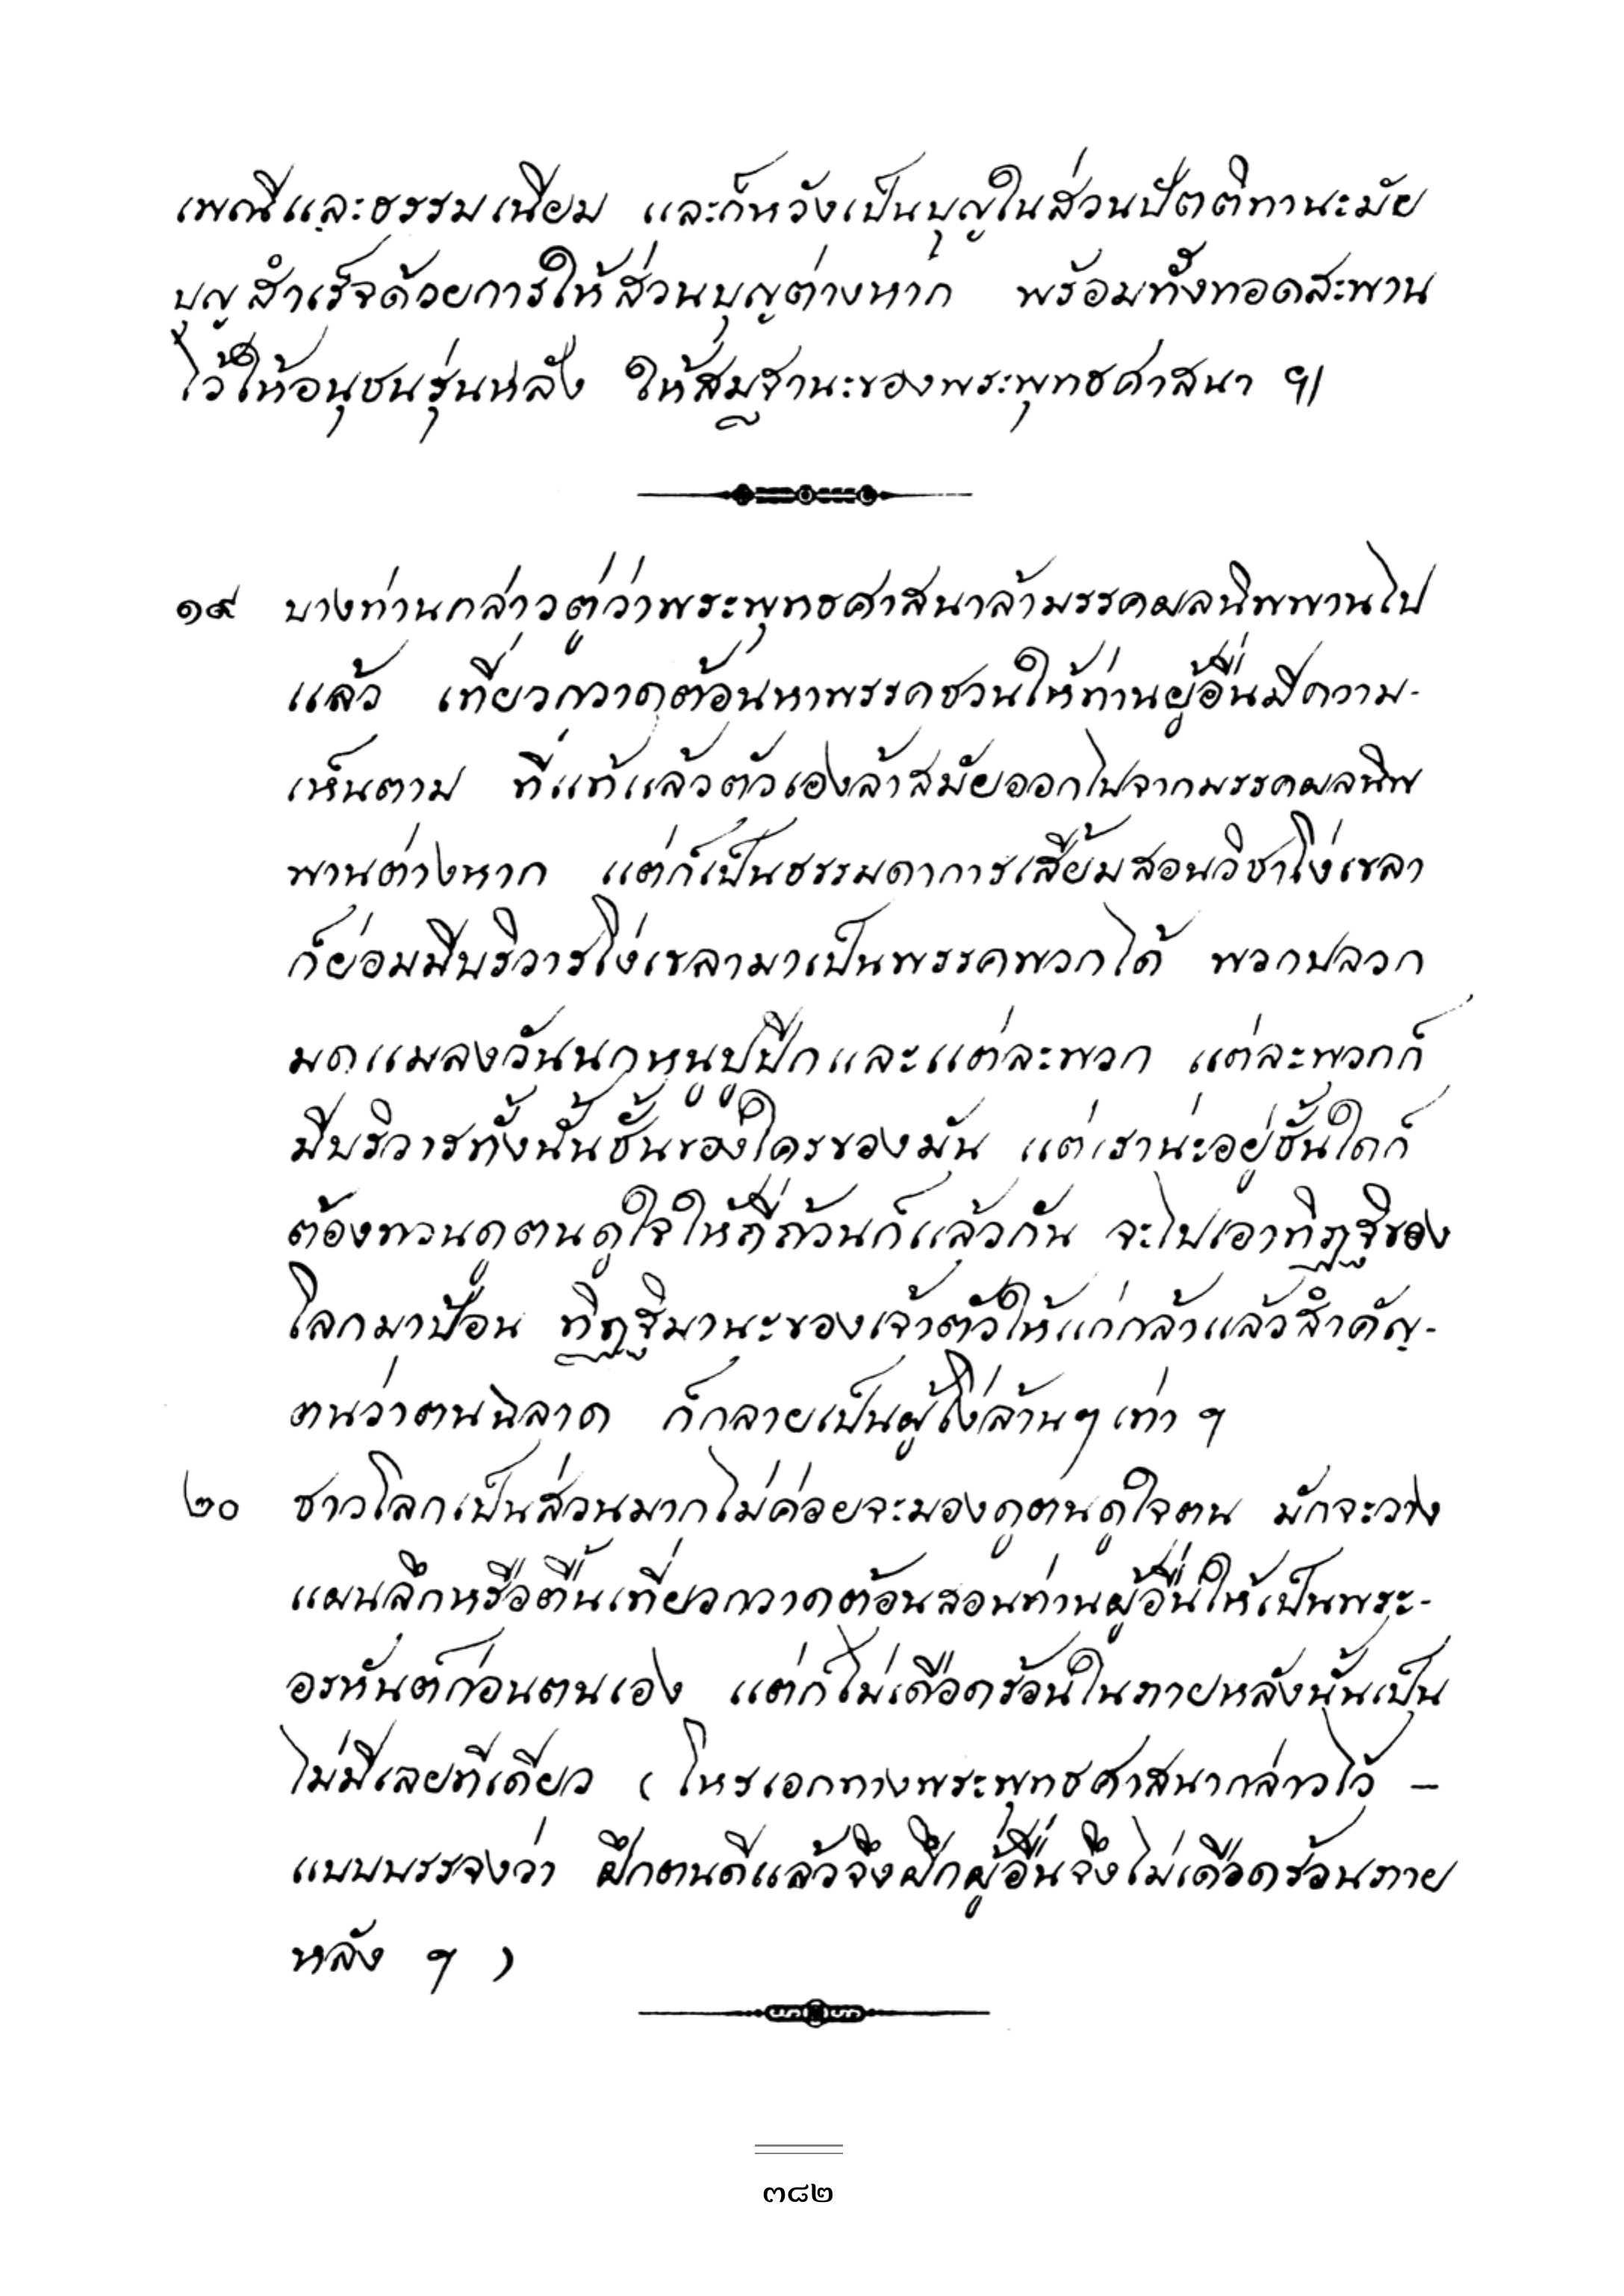 เพณีและธรรมเนียม และก็หวังเป็นบุญในส่วนปัตติทานะมัย
บุญสำเร็จด้วยการให้ส่วนบุญต่างหาก พร้อมทั้งทอดสะพาน
ไว้ให้อนุชนรุ่นหลัง ให้สมฐานะของพระพุทธศาสนา ฯ|
๑๙ บางท่านกล่าวตู่ว่าพระพุทธศาสนาล้ามรรคผลนิพพานไป
แล้ว เที่ยวกวาดต้อนหาพรรคชวนให้ท่านผู้อื่นมีความ-
เห็นตาม ที่แท้แล้วตัวเองล้าสมัยออกไปจากมรรคผลนิพ
พานต่างหาก แต่ก็เป็นธรรมดาการเสี้ยมสอนวิชาโง่เขลา
ก็ย่อมมีบริวารโง่เขลามาเป็นพรรคพวกได้ พวกปลวก
มดแมลงวันนกหนูปูปีกและแต่ละพวก แต่ละพวกก็
มีบริวารทั้งนั้นชั้นของใครของมัน แต่เราน่ะอยู่ชั้นใดก็
ต้องทวนดูตนดูใจให้ถี่ถ้วนก็แล้วกัน จะไปเอาทิฏฐิของ
โลกมาป้อน ทิฏฐิมานะของเจ้าตัวให้แก่กล้าแล้วสำคัญ-
ตนว่าตนฉลาด ก็กลายเป็นผู้โง่ล้านๆเท่า ฯ
๒๐ ชาวโลกเป็นส่วนมากไม่ค่อยจะมองดูตนดูใจตน มักจะวาง
แผนลึกหรือตื้นเที่ยวกวาดต้อนสอนท่านผู้อื่นให้เป็นพระ-
อรหันต์ก่อนตนเอง แต่ก็ไม่เดือดร้อนในภายหลังนั้นเป็น
ไม่มีเลยทีเดียว ( โหรเอกทางพระพุทธศาสนากล่าวไว้ –
แบบบรรจงว่า ฝึกตนดีแล้วจึงฝึกผู้อื่นจึงไม่เดือดร้อนภาย
หลัง ฯ )
๓๘๒